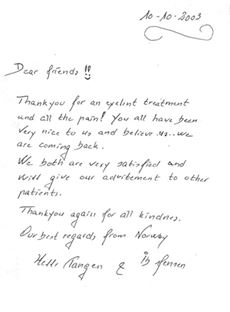 10-10-2003
Dear friends !!
Thankyou for an exelent treatment
and all the pain! You all have been
very nice to us and believe us.. we
are coming back.
We both are very satisfied and
will give our advitement to other
patients.
Thankyou again for all kindnes.
Our best regards from Norway
Helle Rangen & Ib Jensen